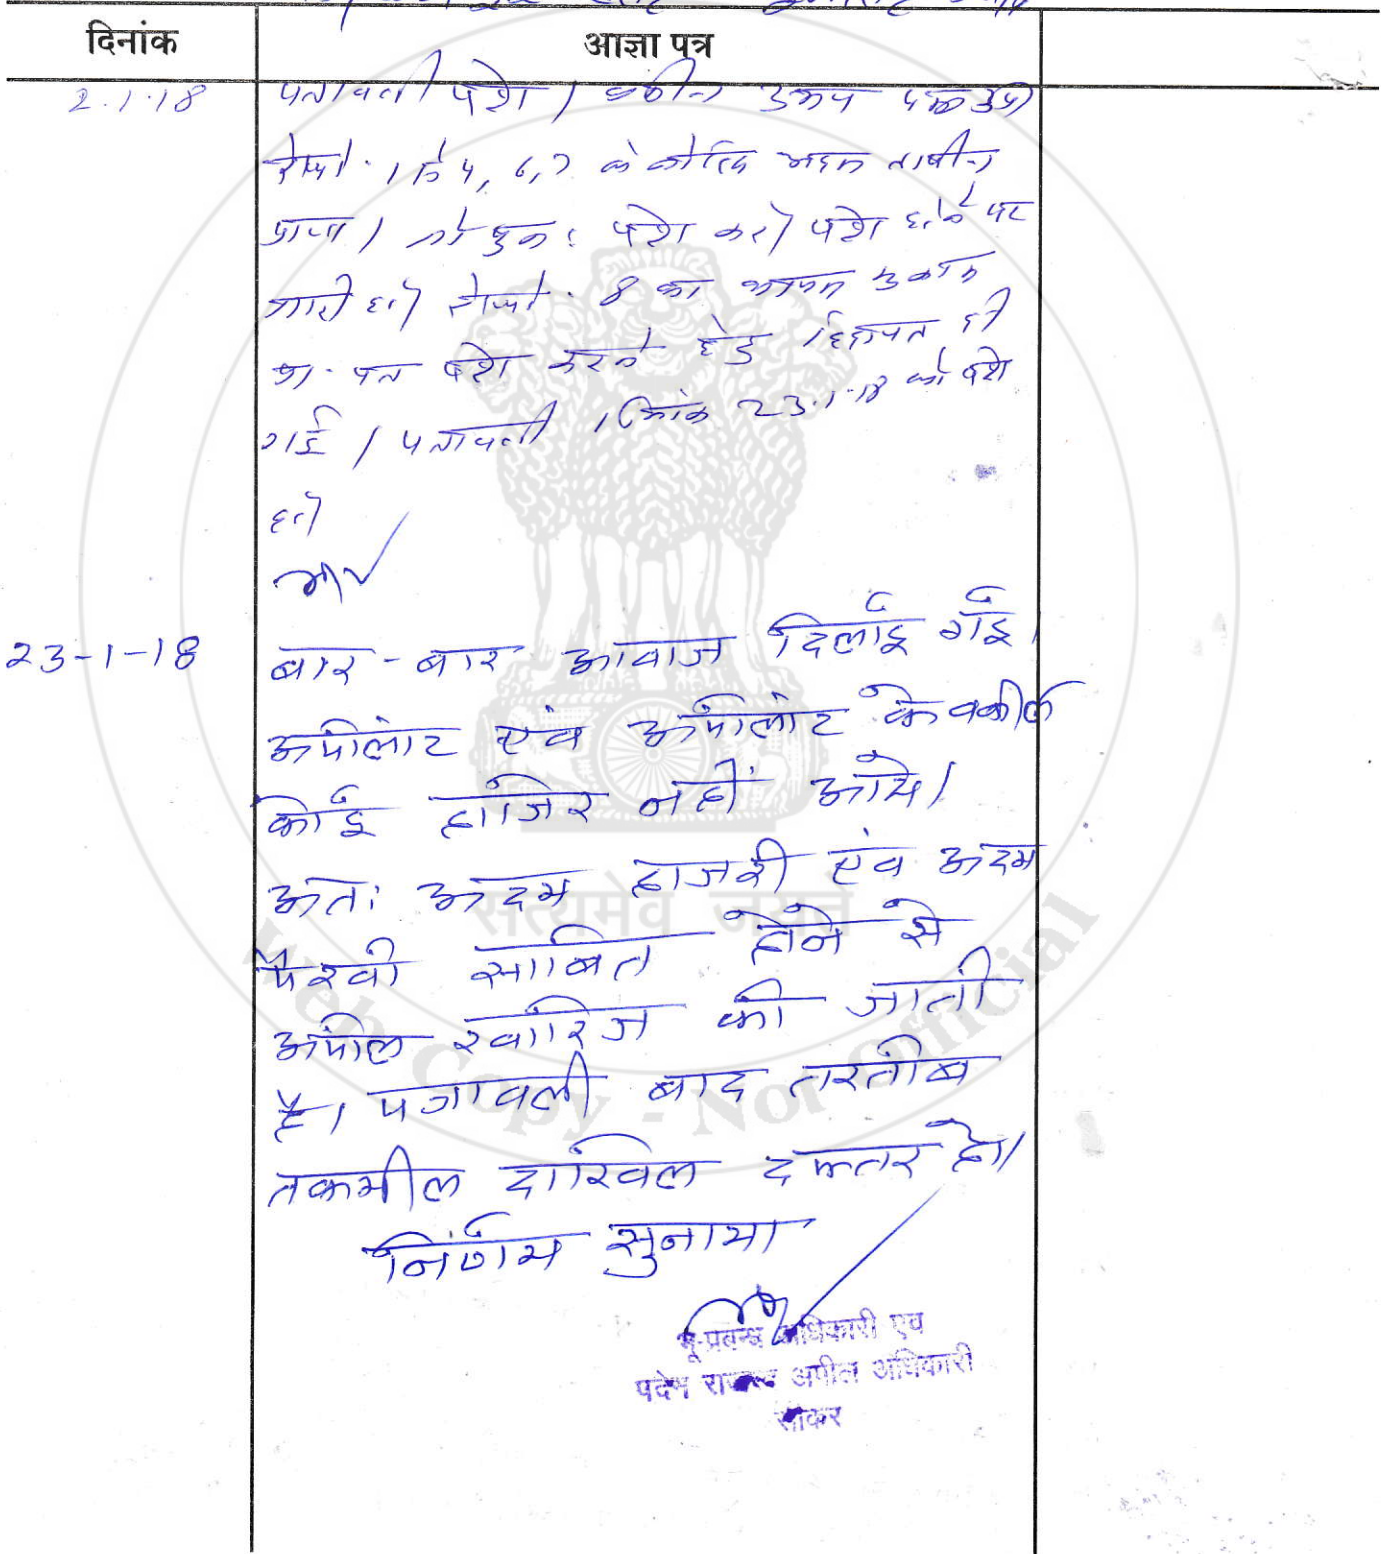 दिनांक आज्ञा पत्र
2.1.18 पत्रावली पेश। वकील उभय पक्ष उप०
रेस्पो. 1 से 4, 6, 7 के नोटिस अदम तामील
प्राप्त। पुनः पेश करे। पेश होने पर
जारी हो। रेस्पो. 8 का कायम मुकाम
प्रा. पत्र पेश करने हेतु हिदायत दी
गई। पत्रावली दिनांक 23.1.18 को पेश
हो।
23-1-18 बार-बार आवाज दिलाई गई।
अपीलांट एंव अपीलांट के वकील
कोई हाजिर नहीं आये।
अतः अदम हाजरी एंव अदम
पैरवी साबित होने से
अपील खारिज की जाती
है। पत्रावली बाद तरतीब
तकमील दाखिल दफ्तर हो।
निर्णय सुनाया
भू-प्रबन्ध अधिकारी एव
पदेन राजस्व अपील अधिकारी
सीकर
सत्यमेव जयते
Web Copy - Not Official